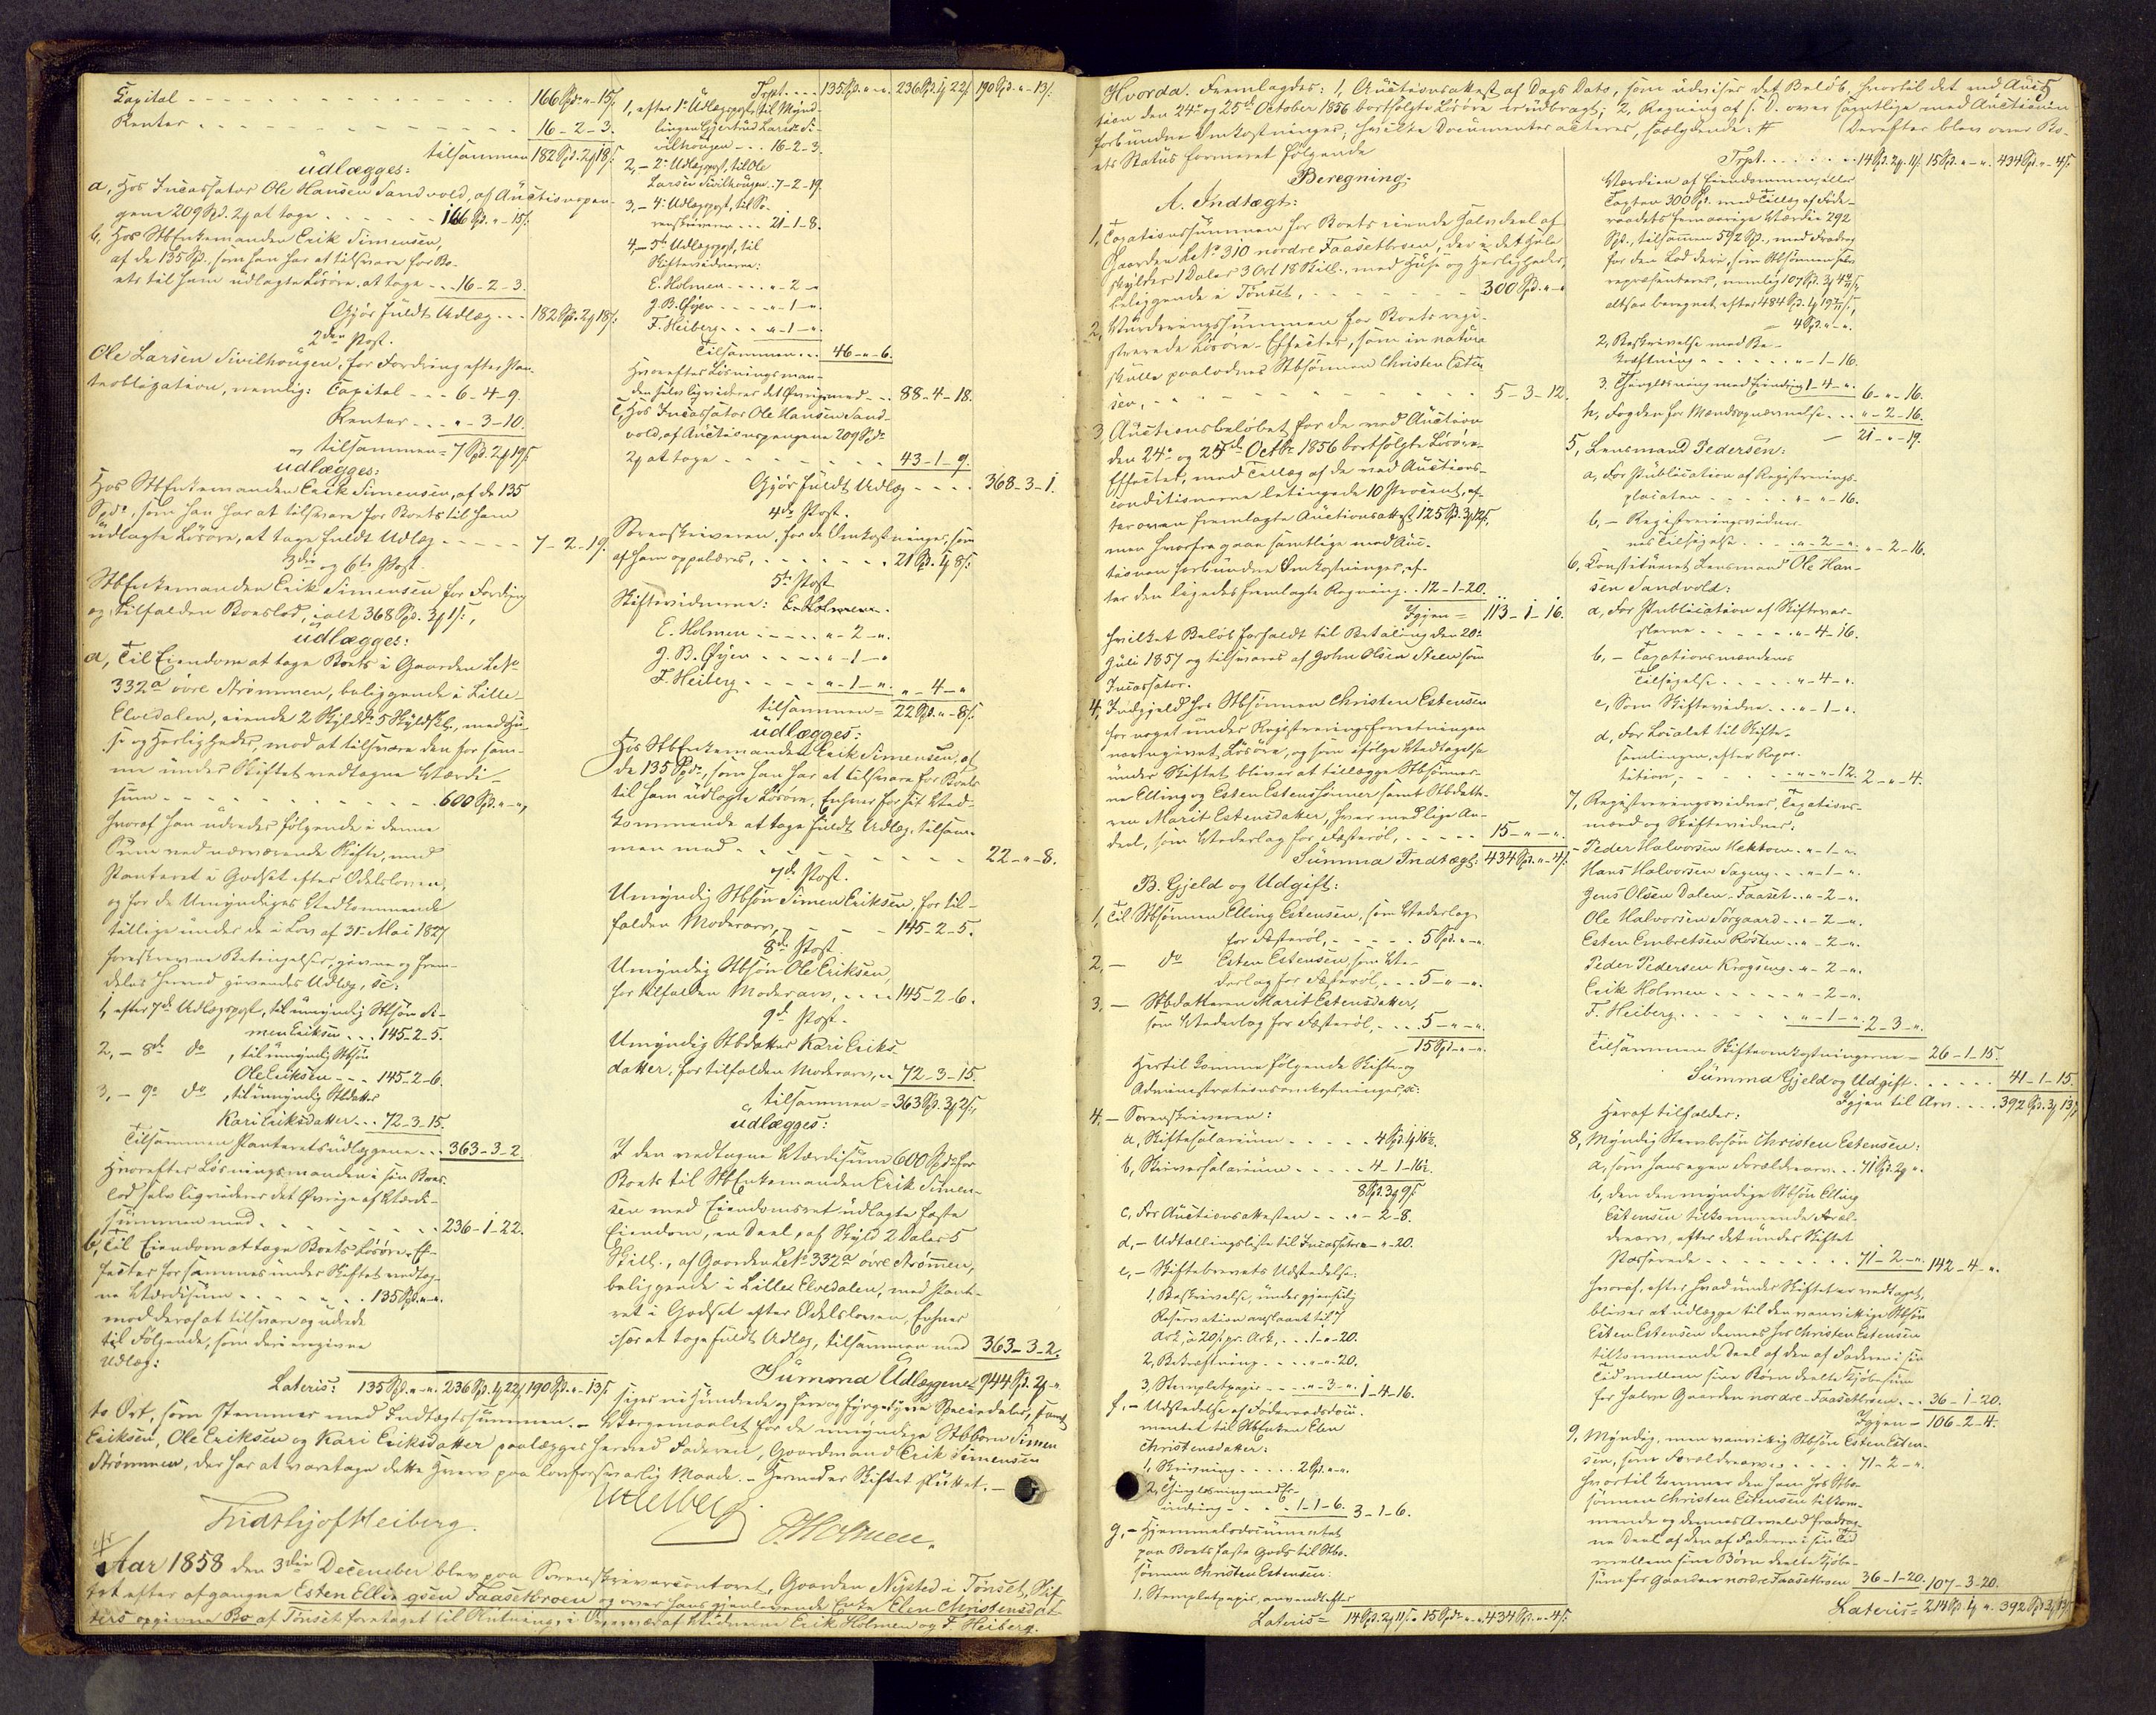 Capital - - - 166 Spd. " - 15 ß.
Renter - - - 16 - 2 - 3.
tilsammen 182 Spd. 2 # 18 ß.
udlægges:
a, Hos Incassator Ole Hansen Sandvold, af Auctionspen-
gene 209 Spd. 2 # at tage - - - 166 Spd. " - 15 ß.
b, Hos Stbenkemanden Erik Simensen,
af de 135 Spd., som han har at tilsvare for Bo-
ets til ham udlagte Løsøre, at tage - - - 16 - 2 - 3.
Gjør fuldt Udlæg - - - 182 Spd. 2 # 18 ß.
2den Post.
Ole Larsen Sivilhaugen, for Fordring efter Pan-
teobligation, nemlig: Capital - - - 6 - 4 - 9.
Renter - - - " - 3 - 10.
tilsammen = 7 Spd. 2 # 19 ß.
udlægges:
Hos Stbenkemanden Erik Simensen, af de 135
Spd., som han har at tilsvare for Boets til ham
udlagte Løsøre, at tage fuldt Udlæg - - - 7 - 2 - 19.
3die og 6te Post.
Stbenkemanden Erik Simensen for Fordring
og tilfalden Boeslod, ialt 368 Spd. 3 # 1 ß.,
udlægges:
a, Til Eiendom at tage Boets i Gaarden Lt. No.
332a øvre Strømmen, beliggende i Lille-
Elvedalen, eiende 2 Skyldd. 5 Skyldsk., med Hu-
se og Herligheder, mod at tilsvare den for sam-
me under Skiftet vedtagne Værdi-
sum - - - 600 Spd. " - ",
hvoraf han udreder følgende i denne
Sum ved nærværende Skifte, med
Panteret i Godset efter Odelsloven,
og for de Umyndiges Vedkommende
tillige under de i Lov af 31te Mai 1827
foreskrevne Betingelser, givne og frem-
deles herved givendes Udlæg, sc:
1, efter 7de Udlægspost, til umyndig Stbsøn Si-
men Eriksen - - - 145 - 2 - 5.
2, - 8de do, til umyndig Stbsøn
Ole Eriksen - - - 145 - 2 - 6.
3, - 9de do, til umyndig Stbdatter
Kari Eriksdatter - - - 72 - 3 - 15.
Tilsammen Panteretsudlæggene - - - 363 - 3 - 2.
Hvorefter Løsningsmanden i sin Boes-
lod selv liqviderer det Øvrige af Værdi-
summen med - - - 236 - 1 - 22.
b, Til Eiendom at tage Boets Løsøre-Ef-
fecter for sammes under Skiftet vedtag-
ne Værdisum - - - 135 Spd. " - ".
mod deraf at tilsvare og udrede
til Følgende, som deri ere givne
Udlæg:
Lateris: 135 Spd. " - ". 236 Spd. 1 # 22 ß. 190 Spd. " - 13 ß.
Trpt. - - - 135 Spd. " - ". 236 Spd. 1 # 22 ß. 190 Spd. " - 13 ß.
1, efter 1ste Udlægspost, til Mynd-
lingen Gjertrud Larsd. Si-
vilhaugen - - - 16 - 2 - 3.
2, - 2den Udlægspost, til Ole
Larsen Sivilhaugen - 7 - 2 - 19.
3, - 4de Udlægspost, til So-
renskriveren - - - 21 - 1 - 8.
4, - 5te Udlægspost, til
Skiftevidnerne:
E. Holmen - - - " - 2 - "
J. B. Øyen - - - " - 1 - ".
F. Heiberg - - - " - 1 - ".
Tilsammen - - - 46 - " - 6.
Hvorefter Løsningsman-
den selv liqviderer det Øvrige med - - - 88 - 4 - 18.
c, Hos Incassator Ole Hansen Sand-
vold, af Auctionspengene 209 Spd.
2 # at tage - - - 43 - 1 - 9.
Gjør fuldt Udlæg - - - 368 - 3 - 1.
4de Post.
Sorenskriveren, for de Omkostninger, som
af ham oppebæres, - - - 21 Spd. 1 # 8 ß.
5te Post.
Skiftevidnerne:
E. Holmen - - - " - 2 - ".
J. B. Øyen - - - " - 1 - "
F. Heiberg - - - " - 1 - ". " - 4 - "
tilsammen = 22 Spd. " - 8 ß.
udlægges:
Hos Stbenkemanden Erik Simensen, af
de 135 Spd., som han har at tilsvare for Boets
til ham udlagte Løsøre, Enhver for sit Ved-
kommende at tage fuldt Udlæg, tilsam-
men med - - - 22 - " - 8.
7de Post.
Umyndig Stbsøn Simen Eriksen, for til-
falden Moderarv, - - - 145 - 2 - 5.
8de Post.
Umyndig Stbsøn Ole Eriksen,
for tilfalden Moderarv, - - - 145 - 2 - 6.
9de Post.
Umyndig Stbdatter Kari Eriks-
datter, for tilfalden Moderarv, - - 72 - 3 - 15.
tilsammen = 363 Spd. 3 # 2 ß.,
udlægges:
I den vedtagne Værdisum 600 Spd. for
Boets til Stbenkemanden Erik Simen-
sen med Eiendomsret udlagte faste
Eiendom, en Deel, af Skyld 2 Daler 5
Skill., af Gaarden Lt. No. 332a øvre Strømmen,
beliggende i Lille Elvedalen, med Pant-
ret i Godset efter Odelsloven, Enhver
især at tage fuldt Udlæg, tilsammen med 363 - 3 - 2.
Summa Udlæggene = 944 Spd. 2 # - "
siger ni Hundrede og fire og fyrgetyve Speciedaler, samt
to Ort, som stemmer med Indtægtssummen. - Værgemaalet for de umyndige Stbbørn Simen
Eriksen, Ole Eriksen og Kari Eriksdatter paalægges herved Faderen, Gaardmand Erik Simensen
Strømmen, der har at varetage dette Hverv paa lovforsvarlig Maade. - Hermed er Skiftet sluttet. -
Heiberg
Fridthjof Heiberg.
E. Holmen.
Aar 1858 den 3die December blev paa Sorenskrivercontoret, Gaarden Nysted i Tønset, Skif-
tet efter afgangne Esten Ellingsen Faasetbroen og over hans gjenlevende Enke Elen Christensdat-
ters opgivne Bo af Tønset foretaget til Slutning, i Overvær af Vidnerne Erik Holmen og F. Heiberg.
Hvorda. Fremlagdes: 1, Auctionsattest af Dags Dato, som udviser det Beløb, hvortil det ved Auc-
tion den 24de og 25de October 1856 bortsolgte Løsøre er udbragt; 2, Regning af s. D. over samtlige med Auctionen
forbundne Omkostninger, hvilke Documenter acteres, saalydende: # Derefter blev over Bo-
ets Status formeret følgende
Beregning:
A. Indtægt:
1, Taxationssummen for Boets eiende Halvdeel af
Gaarden Lt. No. 310 nordre Faasetbroen, der i det Hele
skylder 1 Daler 3 Ort 18 Skill., med Huse og Herligheder,
beliggende i Tønset, - - - 300 Spd. " - "
2, Vurderingssummen for Boets regi-
strerede Løsøre-Effecter, som in natura
skulle paalodnes Stbsønnen Christen Esten-
sen, - - - 5 - 3 - 12.
3, Auctionsbeløbet for de ved Auction
den 24de og 25de Octbr. 1856 bortsolgte Løsøre-
Effecter, med Tillæg af de ved Auctions-
conditionerne betingede 10 Procent, ef-
ter oven fremlagte Auctionsattest 125 Spd. 3 # 12 ß.,
men hvorfra gaae samtlige med Auc-
tionen forbundne Omkostninger, ef-
ter den ligeledes fremlagte Regning - 12 - 1 - 20.
Igjen = 113 - 1 - 16.
hvilket Beløb forfaldt til Betaling den 20de
Juli 1857 og tilsvares af John Olsen Steen som
Incassator.
4, Indgjeld hos Stbsønnen Christen Estensen
for noget under Registreringsforretningen
uangivet Løsøre, og som ifølge Vedtagelse
under Skiftet bliver at tillægge Stbsønner-
ne Elling og Esten Estenssønner samt Stbdatte-
ren Marit Estensdatter, hver med lige An-
deel, som Vederlag for Fæsterøl, - - - 15 - " - ".
Summa Indtægt: 434 Spd. " - 4 ß.
B. Gjeld og Udgift:
1, Til Stbsønnen Elling Estensen, som Vederlag
for Fæsterøl, - - - 5 Spd. " - ".
2, - do Esten Estensen, som Ve-
derlag for Fæsterøl, - - - 5 - " - ".
3, - Stbdatteren Marit Estensdatter,
som Vederlag for Fæsterøl, - - - 5 - " - ".
15 Spd. " - ".
Hertil komme følgende Skifte- og
Administrationsomkostninger, sc:
4, - Sorenskriveren:
a, Skiftesalarium - - - 4 Spd. 1 # 16½.
b, Skriversalarium - - - 4 - 1 - 16½.
8 Spd. 3 # 9 ß.
c, For Auctionsattesten - - - " - 2 - 8.
d, - Udtællingsliste til Incassator " - " - 20.
e, - Skiftebrevets Udstedelse:
1, Beskrivelse, under gjensidig
Reservation anslaaet til 7
Ark, à 20 ß pr. Ark, - - - 1 - " - 20.
2, Bekræftning - - - " - " - 20.
3, Stemplet papir - - - " - 3 - ". 1 - 4 - 16.
f, - Udstedelse af Føderaadsdocu-
mentet til Stbenken Elen
Christensdatter:
1, Skrivning - - - 2 Spd. " - ".
2, Thinglæsning med Er-
indring - - - 1 - 1 - 6. 3 - 1 - 6.
g, - Hjemmelsdocumentet
paa Boets faste Gods til Stb-
sønnen Christen Estensen:
1, Stemplet papir, anvendt efter
Lateris = 14 Spd. 2 # 11 ß. 15 Spd. " - ". 434 Spd. " - 4 ß.
Trpt. - - - 14 Spd. 2 # 11 ß. 15 Spd. " - ". 434 Spd. " - 4 ß.
Værdien af Eiendommen, eller
Taxten 300 Spd. med Tillæg af Føde-
raadets femaarige Værdie 292
Spd., tilsammen 592 Spd., med Fradrag
for den Lod deri, som Stbsønnen selv
repræsenterer, nemlig 107 Spd. 3 #
altsaa beregnet efter 484 Spd. 1 #
4 Spd. " - ".
2, Beskrivelse med Be-
kræftning - - - " - 1 - 16.
3, Thinglæsning med Erindring 1 - 4 - ". 6 - " - 16.
h, Fogden for Mandsopnævnelse - - - " - 2 - 16.
21 - " - 19.
5, Lensmand Pedersen:
a, For Publication af Registrerings-
placaten - - - " - " - 16.
b, - Registreringsvidner-
nes Tilsigelse - - - " - 2 - ". " - 2 - 16.
6, Constitueret Lensmand Ole Han-
sen Sandvold:
a, For Publication af Skiftevar-
slerne - - - " - 4 - 16.
b, - Taxationsmændenes
Tilsigelse - - - " - 4 - ".
c, Som Skiftevidne - - - " - 1 - ".
d, For Localet til Skifte-
samlingen, efter Repar-
tition, - - - " - " - 12. 2 - " - 4.
7, Registreringsvidner, Taxations-
mænd og Skiftevidner:
Peder Halvorsen Hektoen - " - 1 - ".
Hans Halvorsen Fageng - - - " - 1 - ".
Jens Olsen Dalen-Faaset - " - 2 - ".
Ole Halvorsen Sørgaard - - " - 2 - ".
Esten Embretsen Røsten - - " - 2 - ".
Peder Pedersen Krogseng - " - 2 - ".
Erik Holmen - - - " - 2 - ".
F. Heiberg - - - " - 1 - ". 2 - 3 - ".
Tilsammen Skifteomkostningerne - 26 - 1 - 15.
Summa Gjeld og Udgift - - - 41 - 1 - 15.
Igjen til Arv - - - 392 Spd. 3 # 13 ß.
Heraf tilfalder:
8, Myndig Stervbesøn Christen Estensen:
a, som hans egen Forældrearv - - - 71 Spd. 2 # ".
b, den den myndige Stbsøn Elling
Estensen tilkommende Foræl-
drearv, efter det under Skiftet
Passerede - - - 71 - 2 - ". 142 - 4 - ".
hvoraf, efter hvad under Skiftet er vedtaget,
bliver at udlægge til den vanvittige Stbsøn
Esten Estensen dennes hos Christen Estensen
tilkommende Deel af den af Faderen i sin
Tid mellem sine Børn deelte Kjøbesum
for halve Gaarden nordre Faasetbroen - - - 36 - 1 - 20.
Igjen - 106 - 2 - 4.
9, Myndig, men vanvittig Stbsøn Esten Esten-
sen, som Forældrearv - - - 71 - 2 - ".
hvortil kommer den ham hos Stb-
sønnen Christen Estensen tilkom-
mende og dennes Arvelod fradrag-
ne Deel af den af Faderen i sin Tid
mellem sine Børn deelte Kjøbe-
sum for Gaarden nordre Faasetbroen 36 - 1 - 20. 107 - 3 - 20.
Lateris = 214 Spd. 1 # ". 392 Spd. 3 # 13 ß.